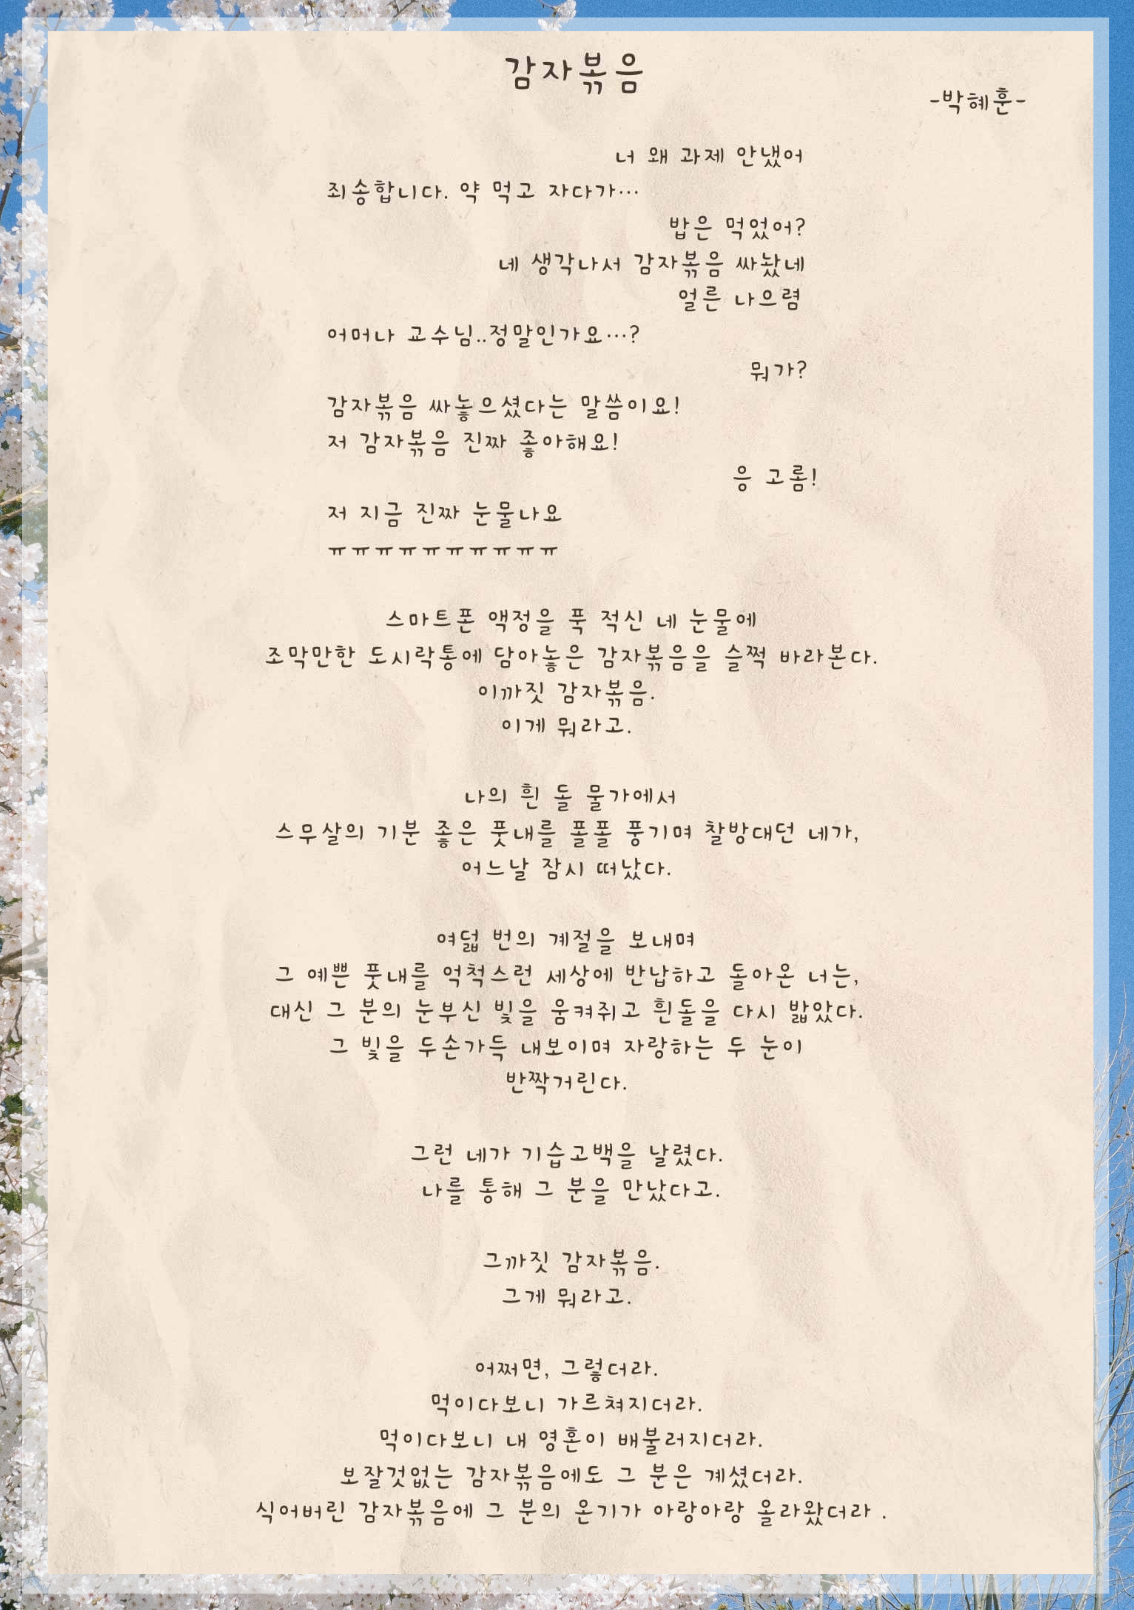 감자볶음
-박혜훈-
너 왜 과제 안냈어
죄송합니다. 약 먹고 자다가…
밥은 먹었어?
네 생각나서 감자볶음 싸놨네
얼른 나으렴
어머나 교수님..정말인가요…?
뭐가?
감자볶음 싸놓으셨다는 말씀이요!
저 감자볶음 진짜 좋아해요!
응 고롬!
저 지금 진짜 눈물나요
ㅠㅠㅠㅠㅠㅠㅠㅠㅠㅠ
스마트폰 액정을 푹 적신 네 눈물에
조막만한 도시락통에 담아놓은 감자볶음을 슬쩍 바라본다.
이까짓 감자볶음.
이게 뭐라고.
나의 흰 돌 물가에서
스무살의 기분 좋은 풋내를 폴폴 풍기며 찰방대던 네가,
어느날 잠시 떠났다.
여덟 번의 계절을 보내며
그 예쁜 풋내를 억척스런 세상에 반납하고 돌아온 너는,
대신 그 분의 눈부신 빛을 움켜쥐고 흰돌을 다시 밟았다.
그 빛을 두손가득 내보이며 자랑하는 두 눈이
반짝거린다.
그런 네가 기습고백을 날렸다.
나를 통해 그 분을 만났다고.
그까짓 감자볶음.
그게 뭐라고.
어쩌면, 그렇더라.
먹이다보니 가르쳐지더라.
먹이다보니 내 영혼이 배불러지더라.
보잘것없는 감자볶음에도 그 분은 계셨더라.
식어버린 감자볶음에 그 분의 온기가 아랑아랑 올라왔더라 .